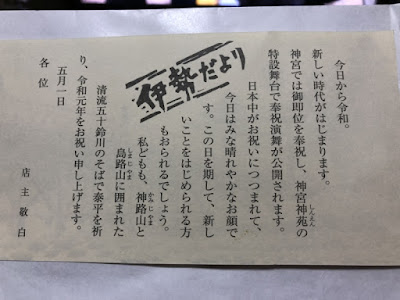 伊勢だより
今日から令和。
新しい時代がはじまります。
神宮では御即位を奉祝し、神宮神苑の
しんえん
特設舞台で奉祝演舞が公開されます。
日本中がお祝いにつつまれて、
今日はみな晴れやかなお顔で
す。この日を期して、新し
いことをはじめられる方
もおられるでしょう。
私どもも、神路山と
かみじやま
島路山に囲まれた
しまじやま
清流五十鈴川のそばで泰平を祈
り、令和元年をお祝い申し上げます。
五月一日
店主敬白
各位